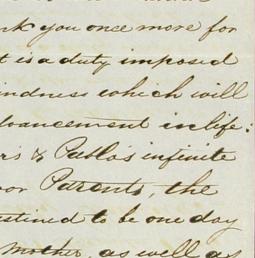 nk you once more for
t is a duty imposed
indness which will
dvancement in life:
r's & Pablo's infinite
oor Parents, the
estined to be one day
Mother, as well as